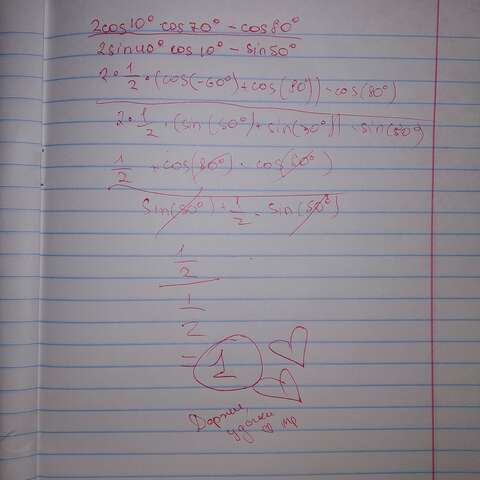 2cos10° cos70° - cos80°
2sin40° cos10° - sin50°
2 · 1/2 · (cos(-60°) + cos(80°)) - cos(80°)
2 · 1/2 · (sin(50°) + sin(30°)) - sin(50°)
1/2 + cos(80°) - cos(80°)
sin(50°) + 1/2 - sin(50°)
1
2
1
2
= 1
Держи,
удачки